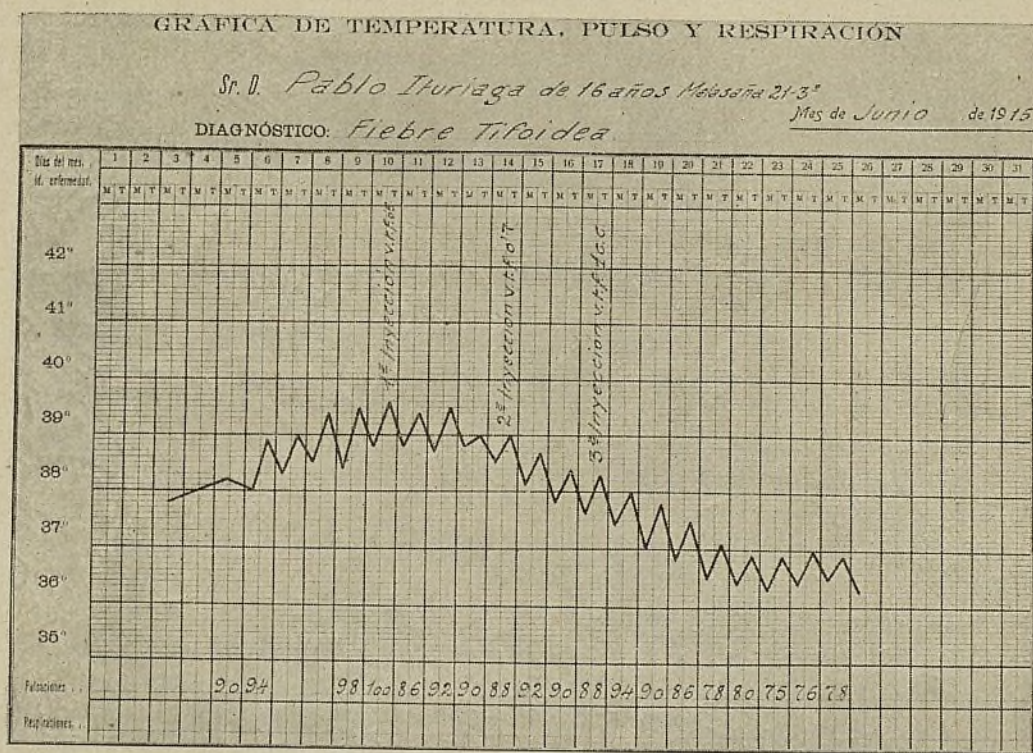 GRÁFICA DE TEMPERATURA, PULSO Y RESPIRACIÓN
Sr. D. Pablo Ituriaga de 16 años Malasaña 21-3º
Mes de Junio de 1915
DIAGNÓSTICO: Fiebre Tifoidea
Días del mes. 1 2 3 4 5 6 7 8 9 10 11 12 13 14 15 16 17 18 19 20 21 22 23 24 25 26 27 28 29 30 31
id. enfermedad. M T M T M T M T M T M T M T M T M T M T M T M T M T M T M T M T M T M T M T M T M T M T M T M T M T M T M T M T M T M T M T
1ª Inyección
2ª Inyección
3ª Inyección
42º
41º
40º
39º
38º
37º
36º
35º
Pulsaciones 90 94 98 100 86 92 90 88 92 90 88 94 90 86 78 80 75 76 78
Respiraciones